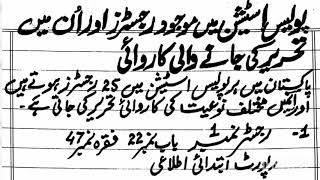 پولیس اسٹیشن میں موجود رجسٹرز اور اُن میں
تحریر کی جانے والی کاروائی
پاکستان میں ہر پولیس اسٹیشن میں 25 رجسٹرز ہوتے ہیں
اور انمیں مختلف نوعیت کی کاروائی تحریر کی جاتی ہے۔
1- رجسٹر نمبر 1 باب نمبر 22 فقرہ نمبر 47
رپورٹ ابتدائی اطلاعی